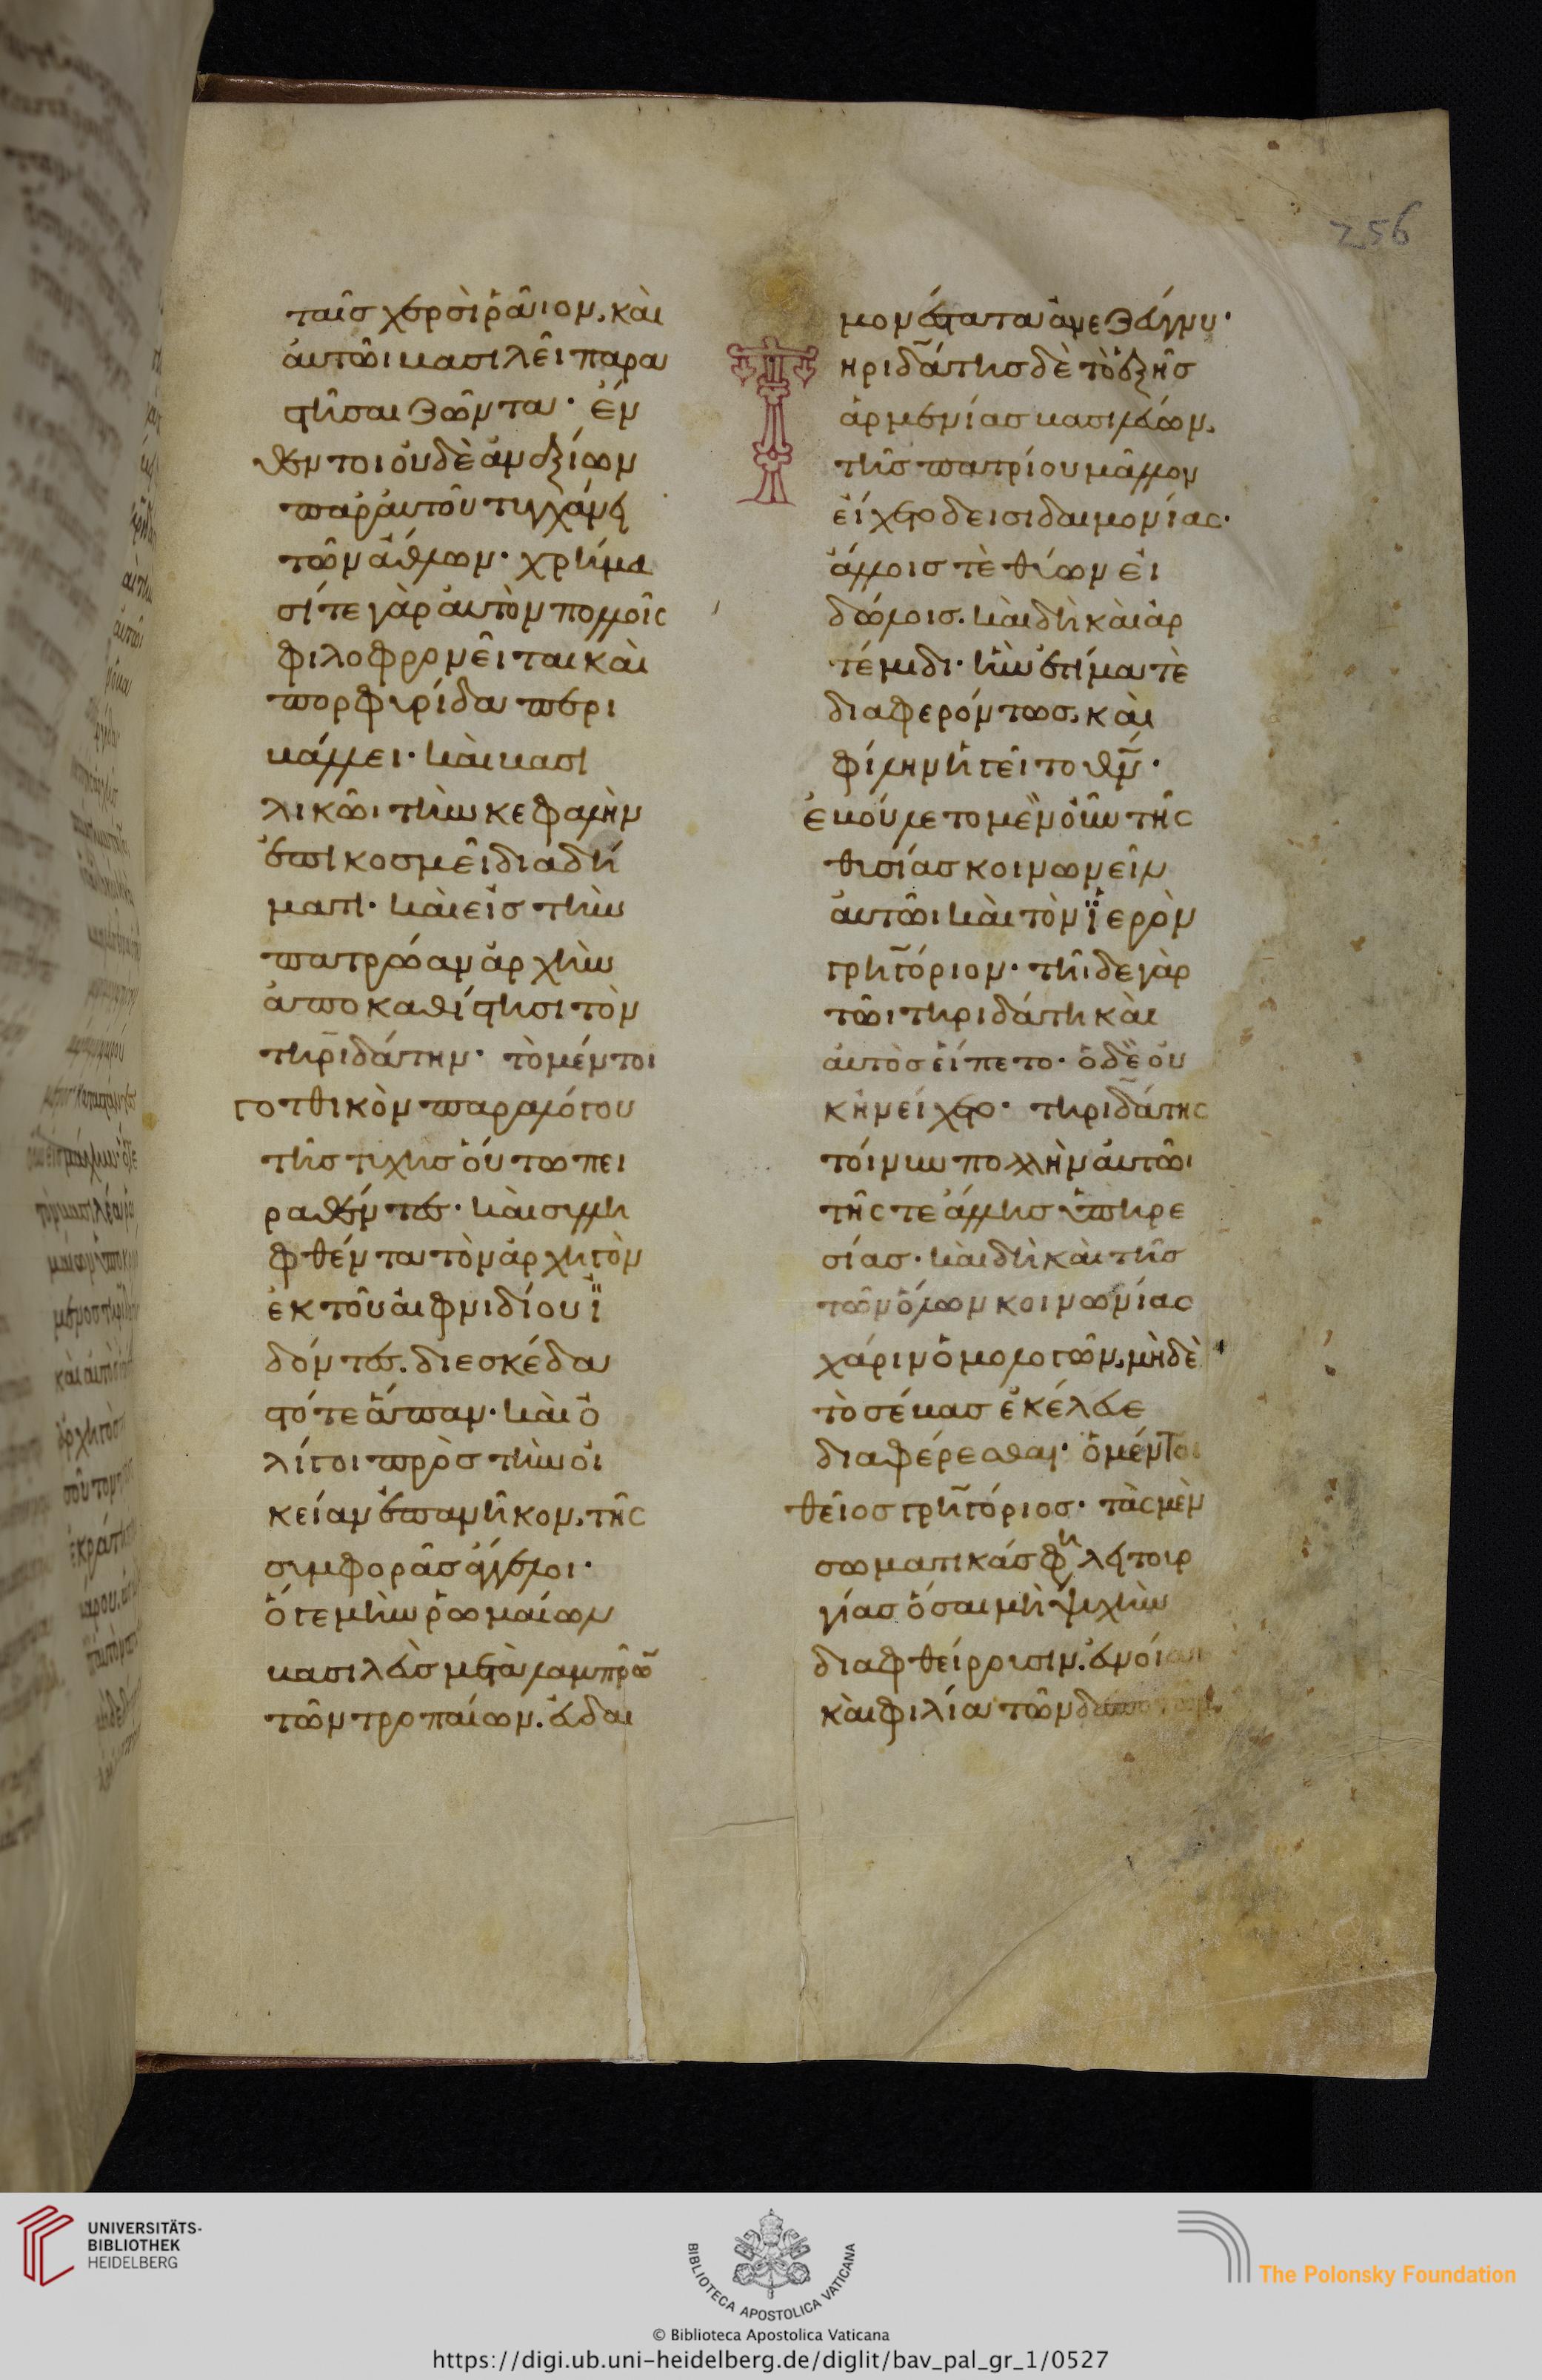 256
ταῖς χερσὶ ῥᾶιον, καὶ
αὐτῶι βασιλεῖ παρα
στῆσαι ζῶντα· ἐν
θέν τοι οὐδὲ ἀναξίων
παρ αὐτοῦ τυγχάνει
τῶν ἄθλων· χρήμα
σί τε γὰρ αὐτὸν πολλοῖς
φιλοφρονεῖται καὶ
πορφυρίδα περι
βάλλει· καὶ βασι
λικῶι τὴν κεφαλὴν
ἐπικοσμεῖ διαδή
ματι· καὶ εἰς τὴν
πατρώαν ἀρχὴν
ἀποκαθίστησι τὸν
τηριδάτην· τὸ μέντοι
γοτθικὸν παραλόγου
τῆς τύχης οὕτω πει
ραθέντες· καὶ συλλη
φθέντα τὸν ἀρχηγὸν
ἐκ τοῦ αἰφνιδίου ἰ
δόντες. διεσκέδα
στό τε ἅπαν· καὶ ὀ
λίγοι πρὸς τὴν οἰ
κείαν ἐπανῆκον, τῆς
συμφορᾶς ἄγγελοι·
ὅ γε μὴν ῥωμαίων
βασιλεὺς μετὰ λαμπρῶ
τῶν τροπαίων. εὐδαι
μονέστατα ἀνεζεύγνυ·
Τηριδάτης δὲ τὸ ἑξῆς
ἀρμενίας βασιλεύων,
τῆς πατρίου μᾶλλον
εἴχετο δεισιδαιμονίας·
ἄλλοις τὲ θύων εἰ
δώλοις. καὶ δὴ καὶ ἀρ
τέμιδι· ἣν ἐτίμα τὲ
διαφερόντως, καὶ
φίλην ἡγεῖτο θν·
ἐβούλετο μὲν οὖν τῆς
θυσίας κοινωνεῖν
αὐτῶι καὶ τὸν ἱερὸν
γρηγόριον· τῆιδε γὰρ
τῶι τηριδάτη καὶ
αὐτὸς εἵπετο· ὁ δὲ οὐ
κ ἠνείχετο· τηριδάτης
τοίνυν πολλὴν αὐτῶι
τῆς τε ἄλλης ὑπηρε
σίας· καὶ δὴ καὶ τῆς
τῶν ὅλων κοινωνίας
χάριν ὁμολογῶν, μὴ δὲ
τὸ σέβας ἐκέλευε
διαφέρεσθαι· ὁ μέντοι
θεῖος γρηγόριος· τὰς μὲν
σωματικάς φη λειτουρ
γίας ὅσαι μὴ ψυχὴν
διαφθείρουσιν. εὐνοίαι
καὶ φιλία τῶν
UNIVERSITÄTS-
BIBLIOTHEK
HEIDELBERG
BIBLIOTECA APOSTOLICA VATICANA
The Polonsky Foundation
© Biblioteca Apostolica Vaticana
https://digi.ub.uni-heidelberg.de/diglit/bav_pal_gr_1/0527